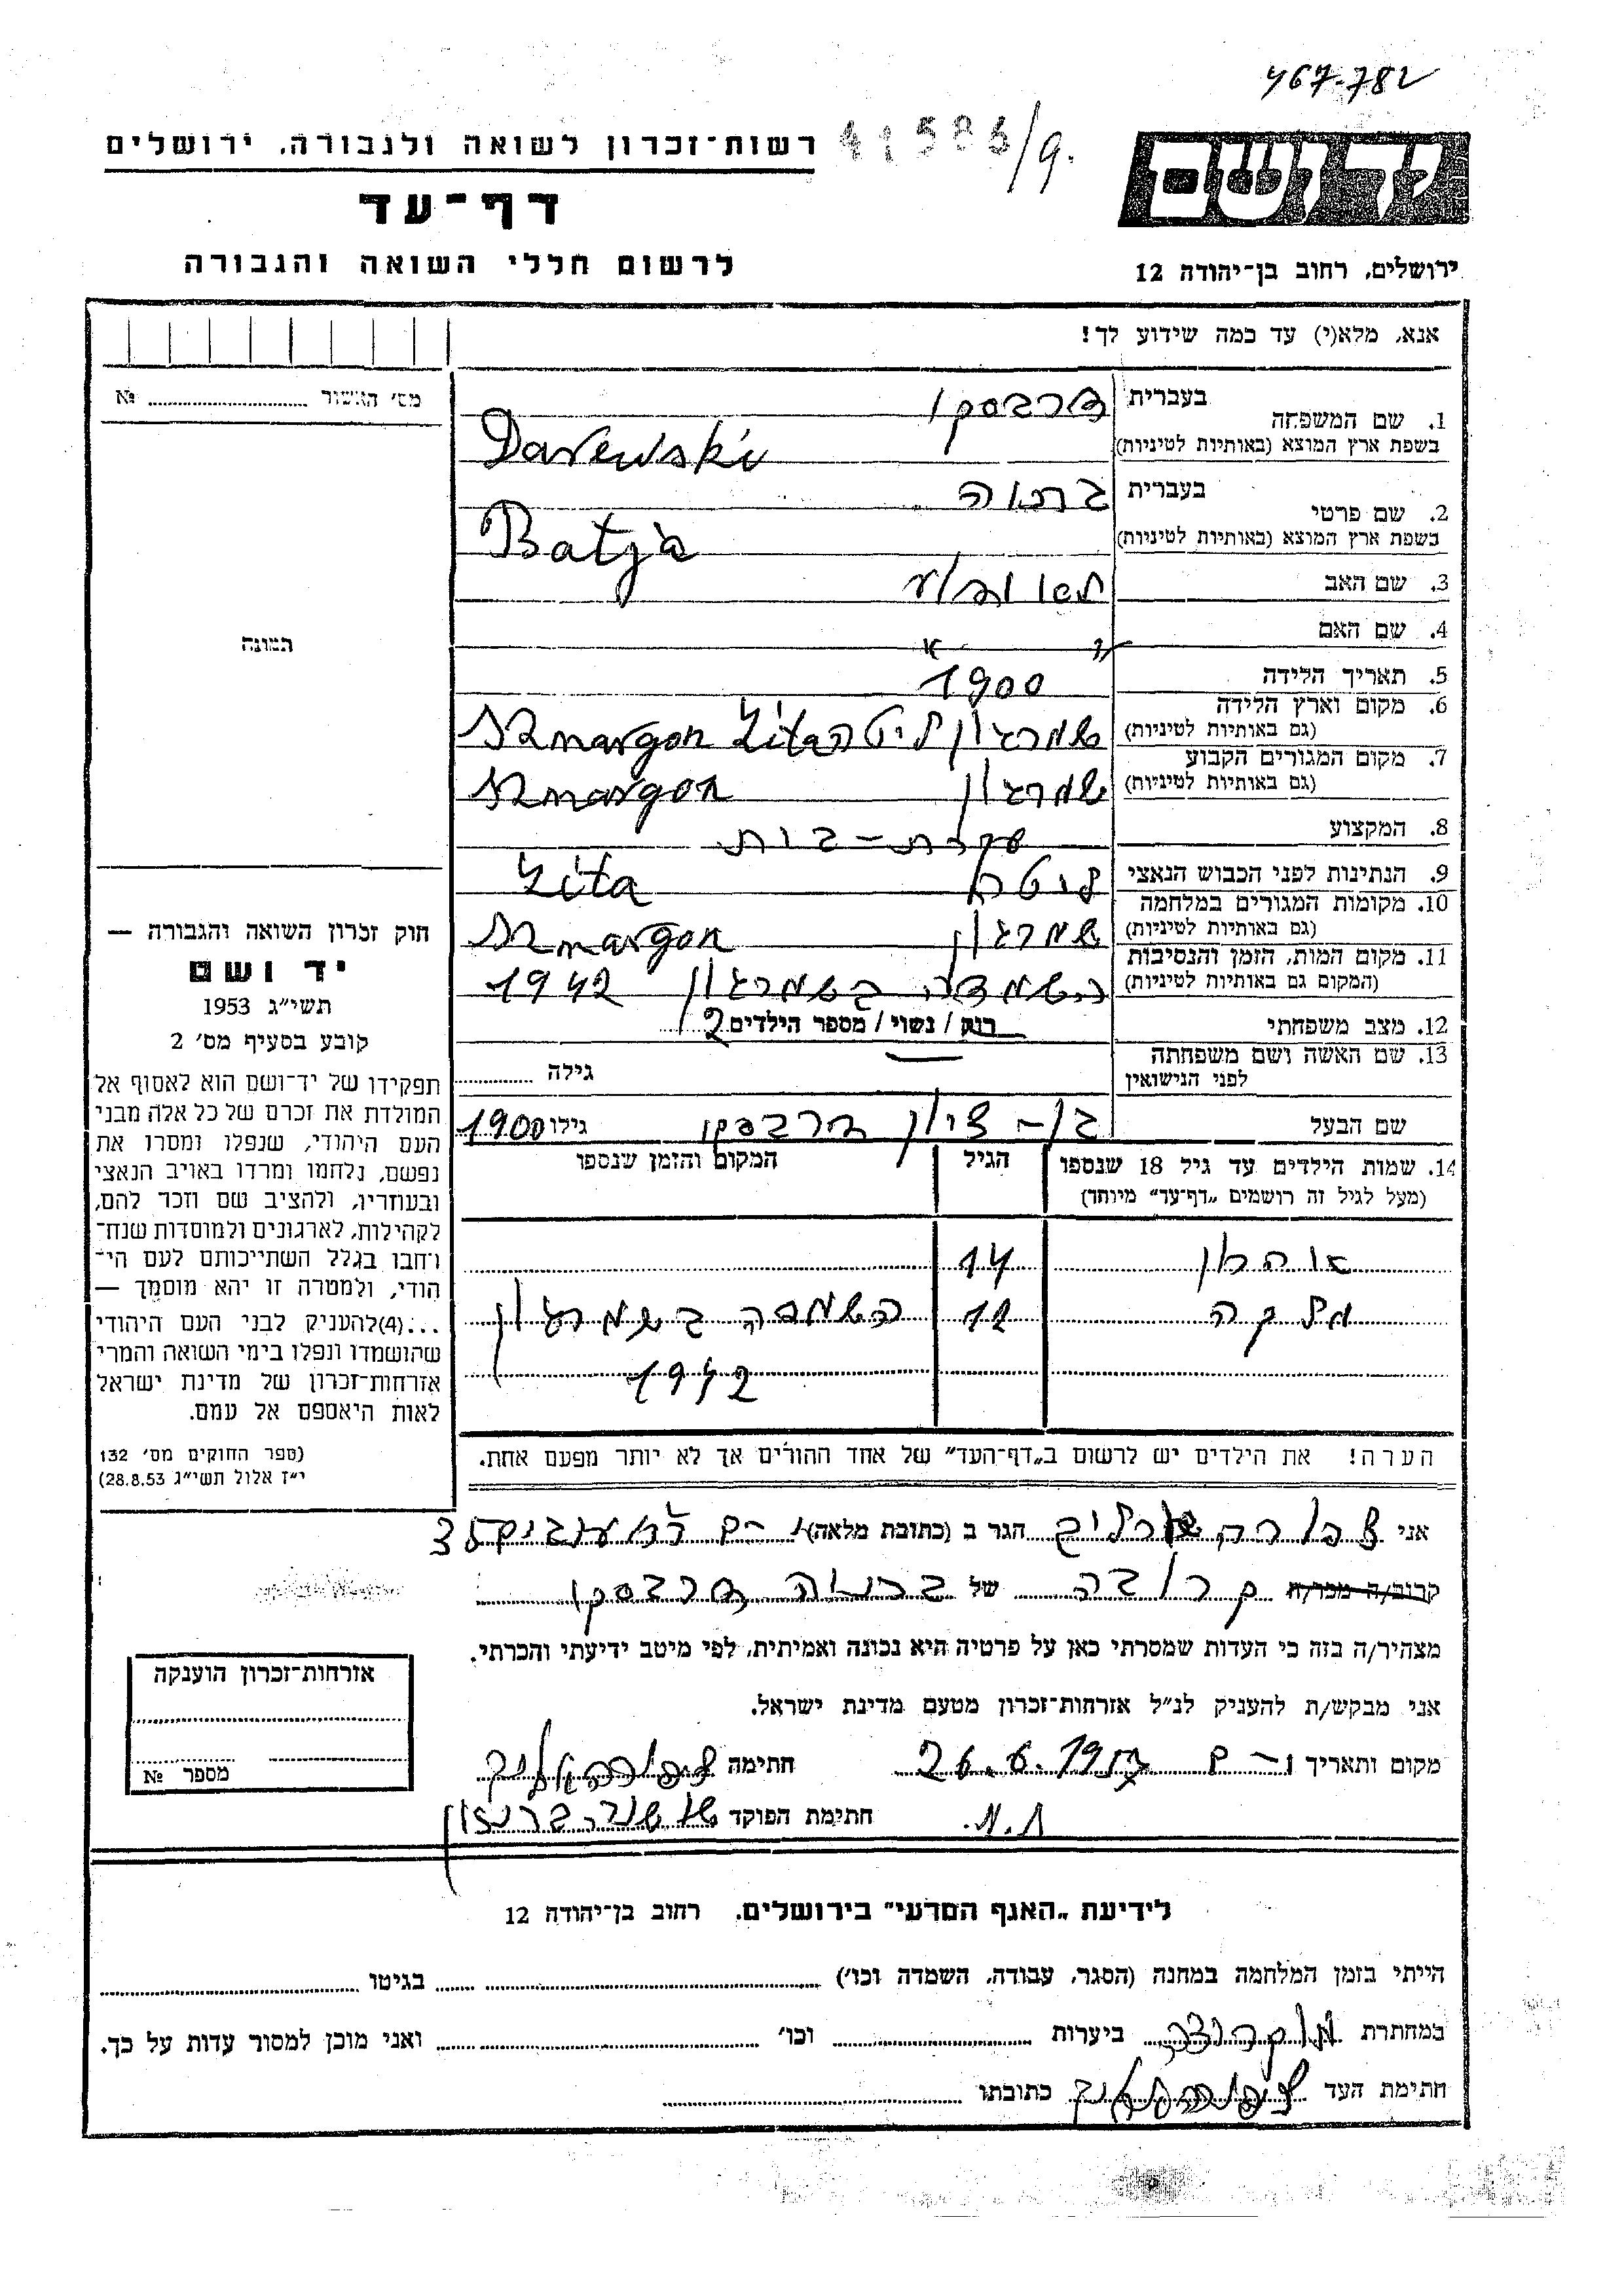 467-782
רשות־זכרון לשואה ולגבורה, ירושלים
41583/9.
יד ושם
דף־עד
לרשום חללי השואה והגבורה
ירושלים, רחוב בן־יהודה 12
אנא, מלא(י) עד כמה שידוע לך!
מס׳ האשור № 
1. שם המשפחה בעברית דרבסקי
בשפת ארץ המוצא (באותיות לטיניות) Darewski
2. שם פרטי בעברית
בשפת ארץ המוצא (באותיות לטיניות) Batja
3. שם האב
4. שם האם
5. תאריך הלידה 1900
6. מקום וארץ הלידה
(גם באותיות לטיניות) שמרגון ליטה Lita Smargon
7. מקום המגורים הקבוע
(גם באותיות לטיניות) שמרגון Smargon
8. המקצוע עקרת-בית
9. הנתינות לפני הכבוש הנאצי ליטה Lita
10. מקומות המגורים במלחמה
(גם באותיות לטיניות) שמרגון Smargon
11. מקום המות, הזמן והנסיבות
(המקום גם באותיות לטיניות) השמדה בשמרגון 1942
12. מצב משפחתי רווק / נשוי / מספר הילדים 2
13. שם האשה ושם משפחתה
לפני הנישואין גילה
שם הבעל בן-ציון דרבסקי גילו 1900
14. שמות הילדים עד גיל 18 שנספו
(מעל לגיל זה רושמים „דף־עד״ מיוחד)
הגיל
המקום והזמן שנספו
אהרן 14
מלכה 12 השמדה בשמרגון
1942
הערה! את הילדים יש לרשום ב„דף־העד״ של אחד ההורים אך לא יותר מפעם אחת.
תמונה
חוק זכרון השואה והגבורה —
יד ושם
תשי״ג 1953
קובע בסעיף מס׳ 2
תפקידו של יד־ושם הוא לאסוף אל
המולדת את זכרם של כל אלה מבני
העם היהודי, שנפלו ומסרו את
נפשם, נלחמו ומרדו באויב הנאצי
ובעוזריו, ולהציב שם וזכר להם,
לקהילות, לארגונים ולמוסדות שנח־
רחבו בגלל השתייכותם לעם הי־
הודי, ולמטרה זו יהא מוסמך —
...(4)להעניק לבני העם היהודי
שהושמדו ונפלו בימי השואה והמרי
אזרחות־זכרון של מדינת ישראל
לאות היאספם אל עמם.
(ספר החוקים מס׳ 132
י״ז אלול תשי״ג 28.8.53)
אני צפורה הגר ב (כתובת מלאה) 35
קרוב/ה מכר/ה קרובה של בתיה דרבסקי
מצהיר/ה בזה כי העדות שמסרתי כאן על פרטיה היא נכונה ואמיתית, לפי מיטב ידיעתי והכרתי.
אני מבקש/ת להעניק לנ״ל אזרחות־זכרון מטעם מדינת ישראל.
מקום ותאריך י-ם 26.6.1957 חתימה
חתימת הפוקד
אזרחות־זכרון הוענקה
מספר №
לידיעת „האגף המדעי״ בירושלים, רחוב בן־יהודה 12
הייתי בזמן המלחמה במחנה (הסגר, עבודה, השמדה וכו׳) בגיטו
במחתרת ביערות וכו׳ ואני מוכן למסור עדות על כך.
חתימת העד כתובתו